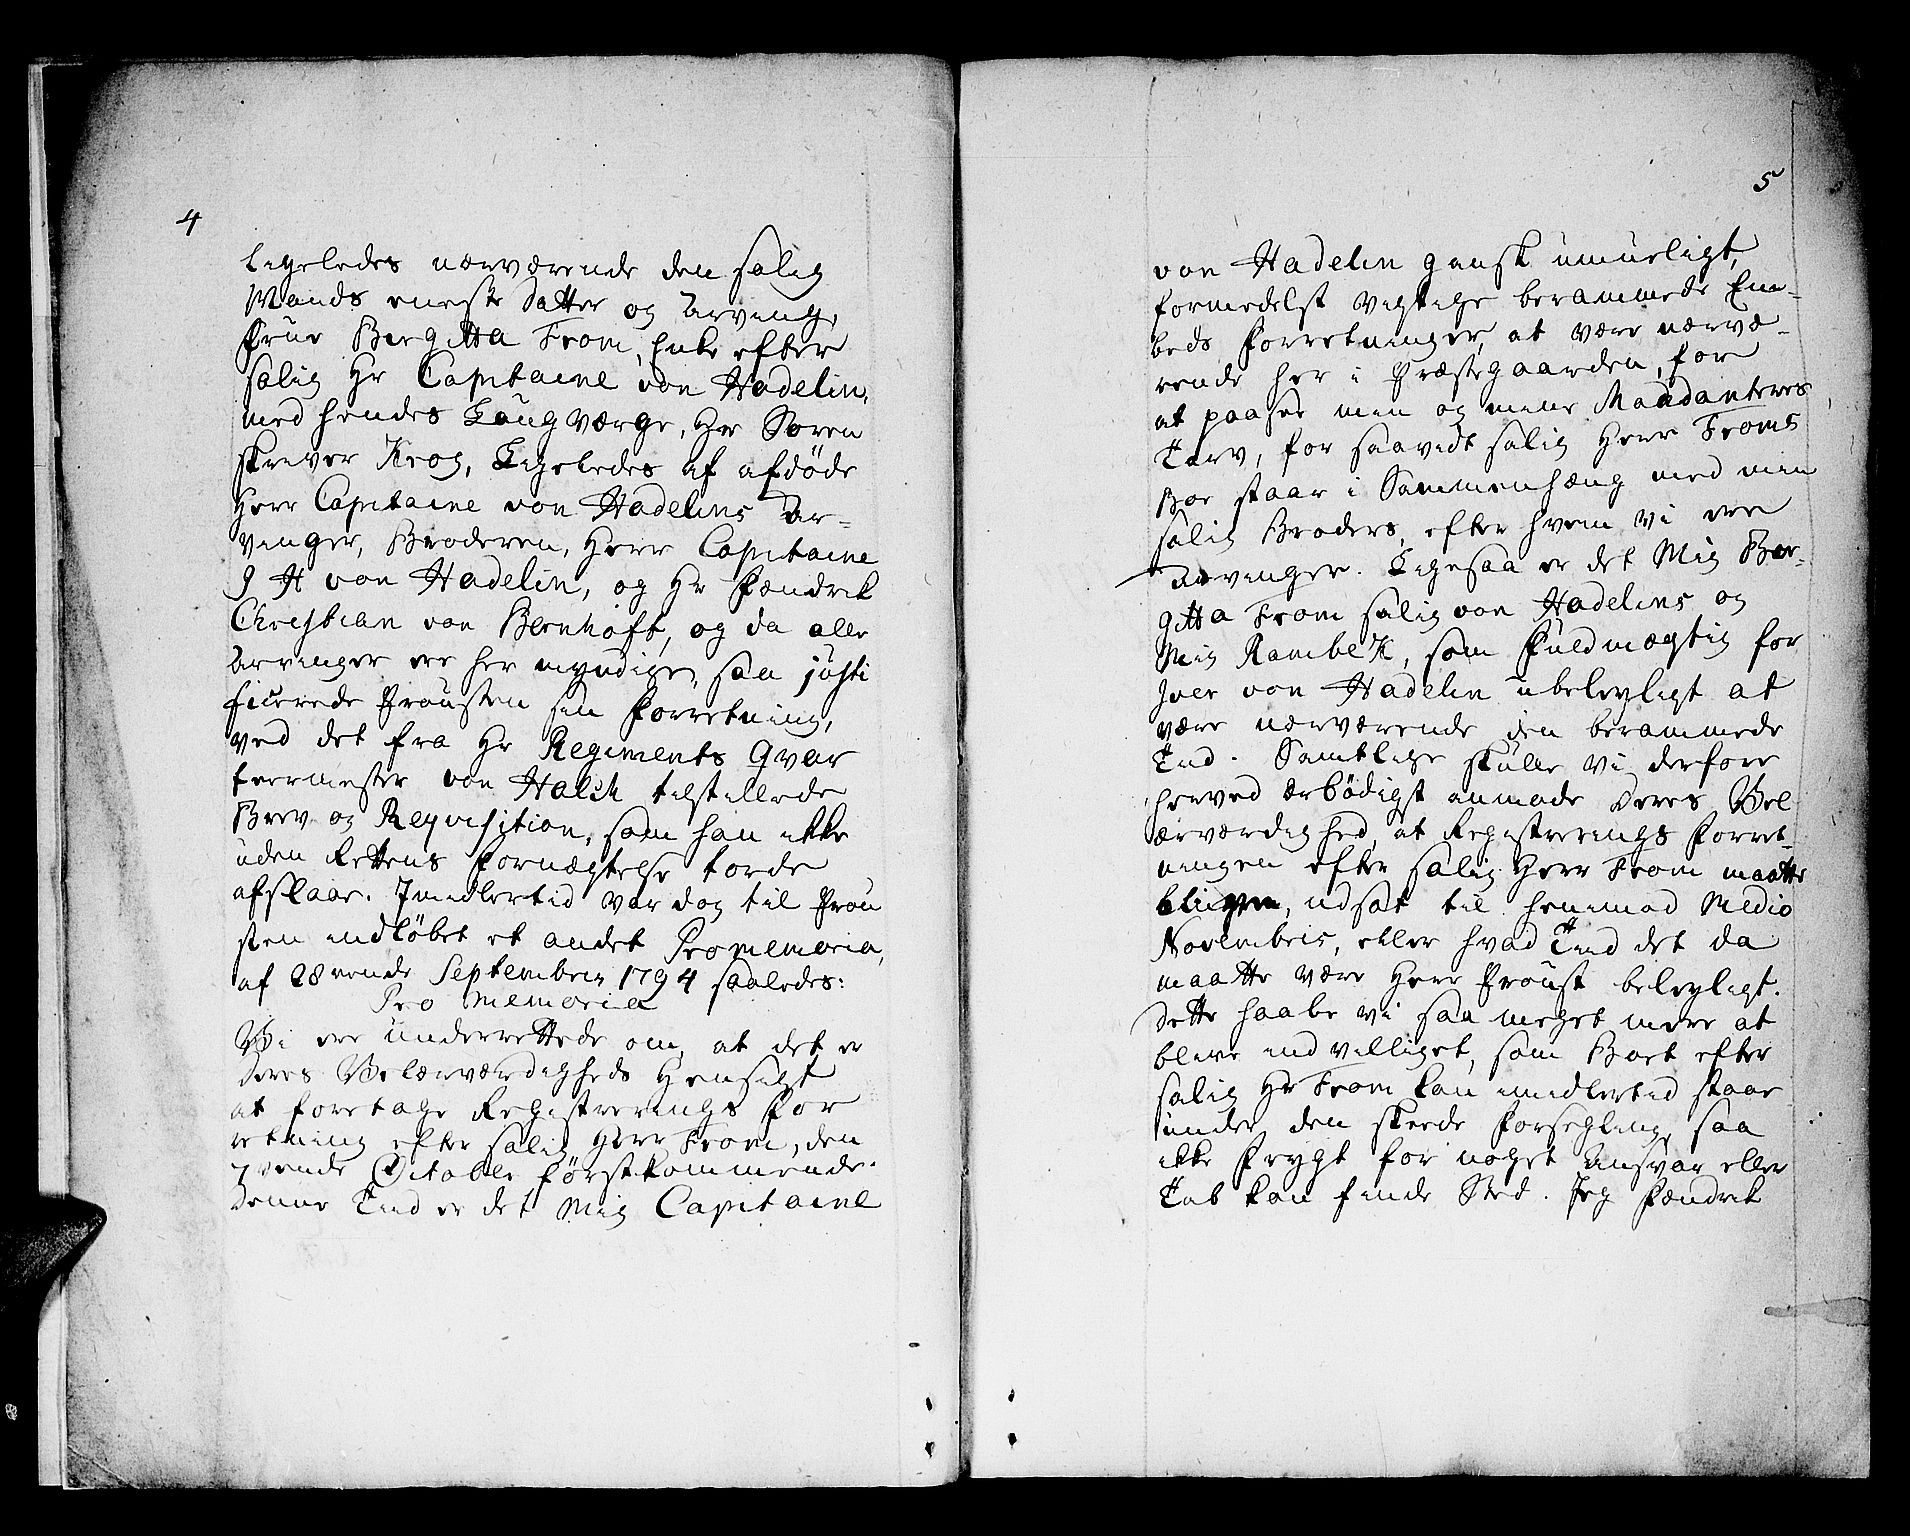 4
Ligeledes nærværende den salig
Mands eneste Datter og Arving,
Frue Bergitta From, Enke efter
salig Hr Capitaine von Hadelin,
med hendes Laugværge, Hr Soren
skriver Krog, Ligeledes af afdöde
Herr Capitaine von Hadelins Ar-
vinger, Broderen, Herr Capitaine
J H von Hadelin, og Hr Fændrik
Christian von Bernhoft, og da alle
Arvinger ere her myndige, saa justi
ficerede Prousten sin Forretning,
ved det fra Hr Regiments Qvar
teermester von Halck tilstillede
Brev og Reqvisition, som han ikke
uden Rettens Fornægtelse torde
afslaae. Imidlertid var dog til Prou
sten indlöbet et andet Promemoria,
af 28vende Septembris 1794 saaledes:
Pro Memoria
Vi ere underrettede om, at det er
Deres Velærværdigheds Hensigt
at foretage Registrerings For
retning efter salig Herr From, den
7vende Octobr förstkommende.
Denne Tiid er det Mig Capitaine
5
von Hadelin gansk umueligt,
formedelst vigtige berammede Em-
beds Forretninger, at være nærvæ-
rende her i Præstegaarden, for
at paasee min og mine Mandanteres
Tarv, for saavidt salig Herr Froms
Boe staar i Sammenhæng med min
salig Broders, efter hvem vi ere
Arvinger. Ligesaa er det Mig Ber-
gitta From salig von Hadelins og
Mig Rambek, som Fuldmægtig for
Iver von Hadelin ubeleyligt at
være nærværende den berammede
Tiid. Samtlige skulle vi derfore
herved ærbödigst anmode Deres Vel
ærværdighed, at Registrerings Forret-
ningen efter salig Herr From maatte
blive, udsat til henimod Medio
Novembris, eller hvad Tiid det da
maatte være Herr Proust beleyligt.
Dette haabe vi saa meget mere at
blive indvilliget, som Boet efter
salig Hr From kan imidlertid staae
under den skeede Forsegling, saa
ikke Frygt for noget Ansvar eller
Tab kan finde Sted. Jeg Fændrik